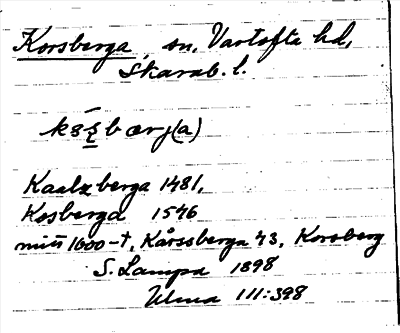 Korsberga, sn, Vartofta hd,
Skarab. l.
bærj(a)
Kaalzberga 1481,
Kosberga 1546
mitt 1600-t, Kårssberga 43, Korsberg
S. Lampa 1898
Ulma 111:398